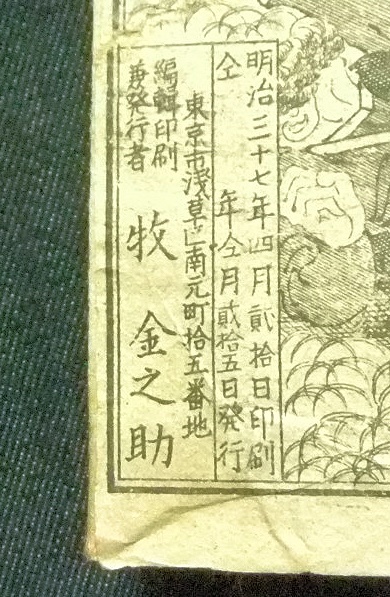 明治三十七年四月貳拾日印刷
仝年仝月貳拾五日発行
東京市浅草区南元町拾五番地
編輯印刷
兼発行者
牧金之助